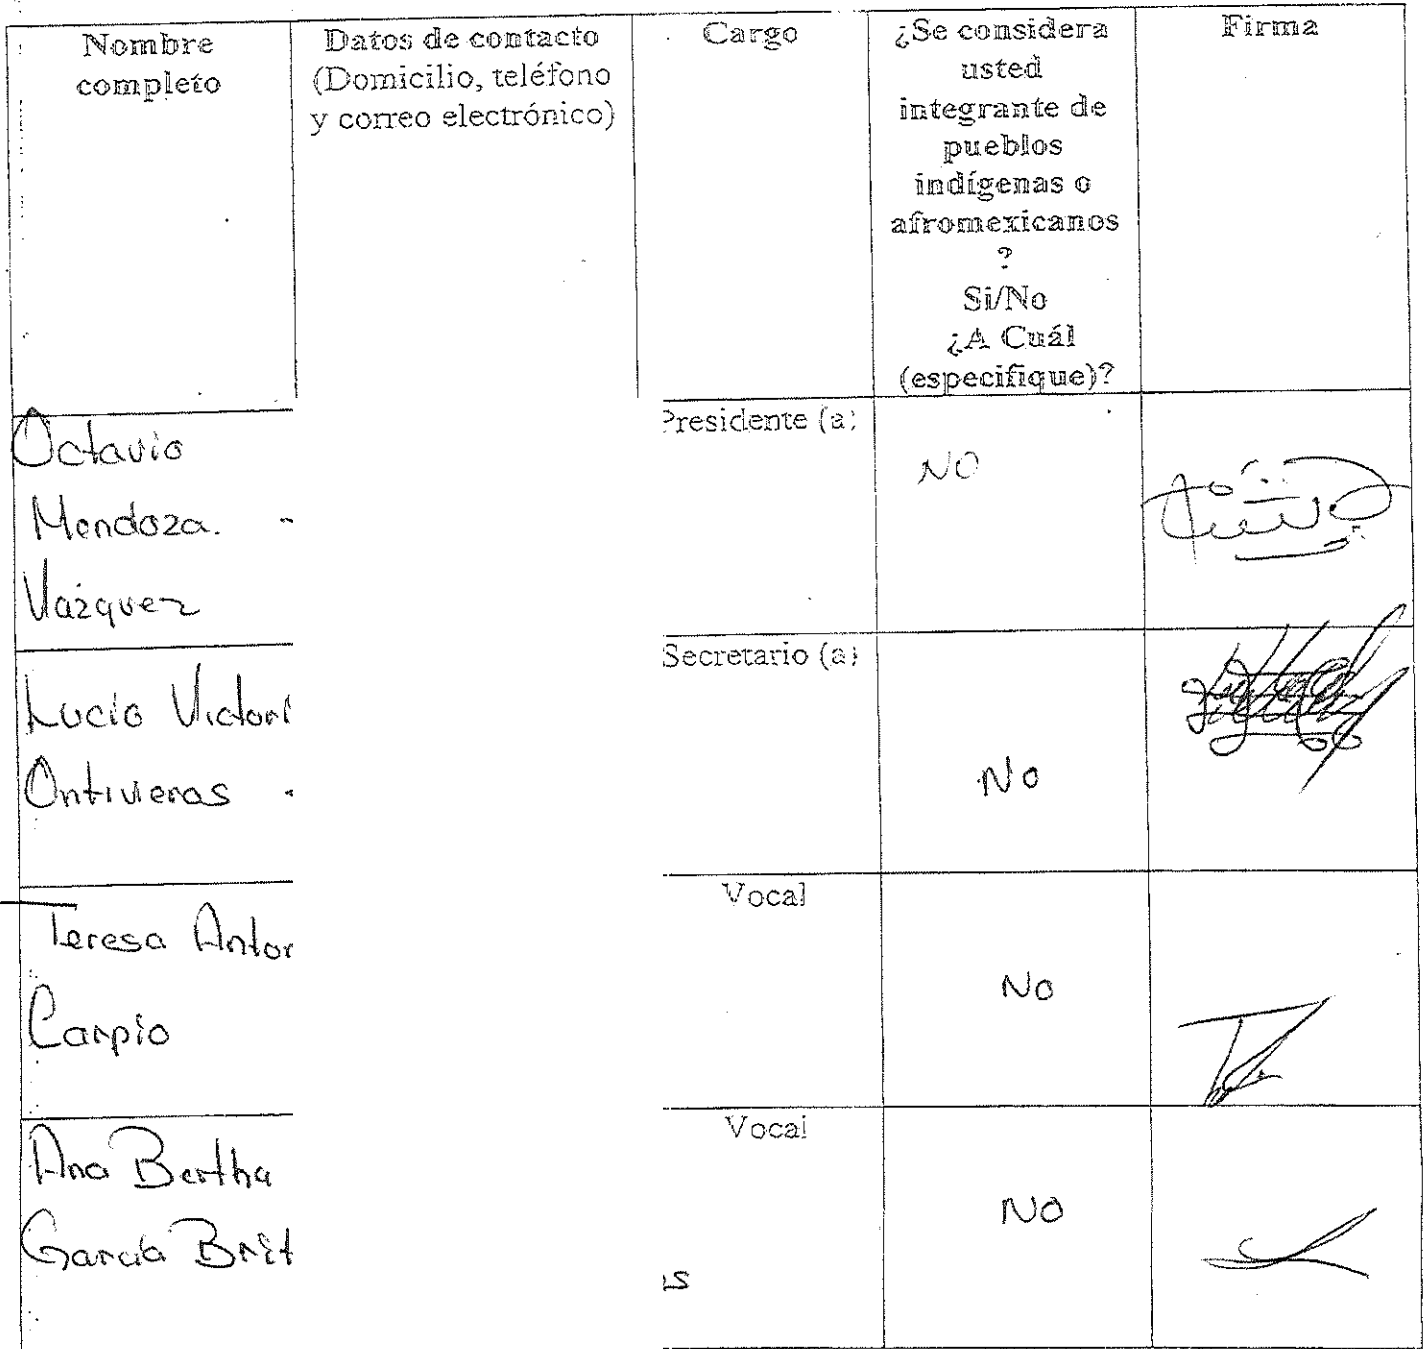 Nombre
completo
Datos de contacto
(Domicilio, teléfono
y correo electrónico)
Cargo
¿Se considera
usted
integrante de
pueblos
indígenas o
afromexicanos
?
Si/No
¿A Cuál
(especifique)?
Firma
Octavio
Mendoza.
Vazquez
Presidente (a)
NO
Lucio Victori
Ontiveros
Secretario (a)
No
Teresa Antor
Carpio
Vocal
No
Ana Bertha
García Brit
Vocal
NO
as